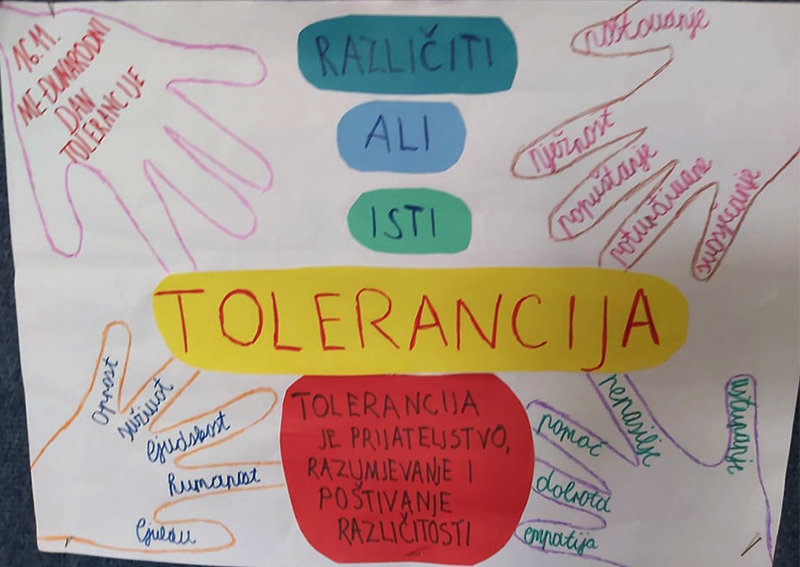 16.11.
MEĐUNARODNI
DAN
TOLERANCIJE
RAZLIČITI
ALI
ISTI
poštovanje
nježnost
popuštanje
suosjećanje
TOLERANCIJA
oprost
suživot
ljudskost
humanost
TOLERANCIJA
JE PRIJATELJSTVO,
RAZUMJEVANJE I
POŠTIVANJE
RAZLIČITOSTI
nenasilje
pomoć
dobrota
empatija